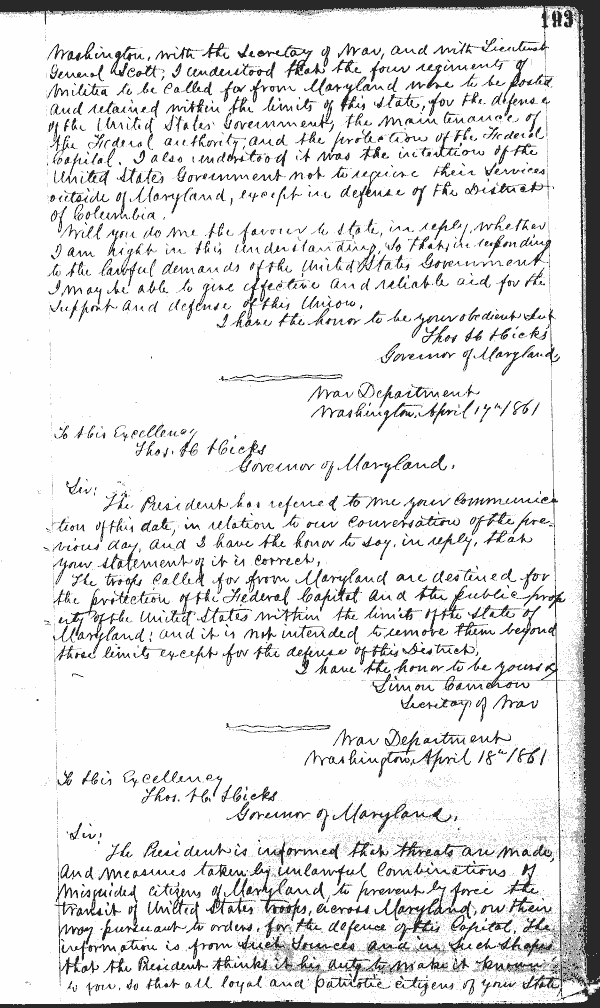 193
Washington, with the Secretary of War, and with Lieutenant
General Scott, I understood that the four regiments of
Militia to be called for from Maryland were to be posted
and retained within the limits of this State, for the defense
of the United States Government, the maintenance of
the Federal authority, and the protection of the Federal
Capital. I also understood it was the intention of the
United States Government not to require their services
outside of Maryland, except in defense of the District
of Columbia.
Will you do me the favour to state, in reply, whether
I am right in this understanding, so that in responding
to the lawful demands of the United States Government
I may be able to give effective and reliable aid for the
support and defense of this Union.
I have the honor to be your obedient Svt
Thos H Hicks
Governor of Maryland
War Department
Washington, April 17th 1861
To His Excellency
Thos. H Hicks
Governor of Maryland.
Sir:
The President has referred to me your communica
tion of this date, in relation to our conversation of the pre-
vious day, and I have the honor to say, in reply, that
your statement of it is correct.
The troops called for from Maryland are destined for
the protection of the Federal Capital and the public prop
erty of the United States within the limits of the State of
Maryland; and it is not intended to remove them beyond
those limits except for the defense of this District.
I have the honor to be yours &
Simon Cameron
Secretary of War
War Department
Washington, April 18th 1861
To His Excellency
Thos. H. Hicks
Governor of Maryland.
Sir:
The President is informed that threats are made,
and measures taken by unlawful combinations of
misguided citizens of Maryland, to prevent by force the
transit of United States troops, across Maryland, on their
way pursuant to orders, for the defence of this Capital. The
information is from such sources and in such shapes
that the President thinks it his duty to make it known
to you, so that all loyal and patriotic citizens of your State,